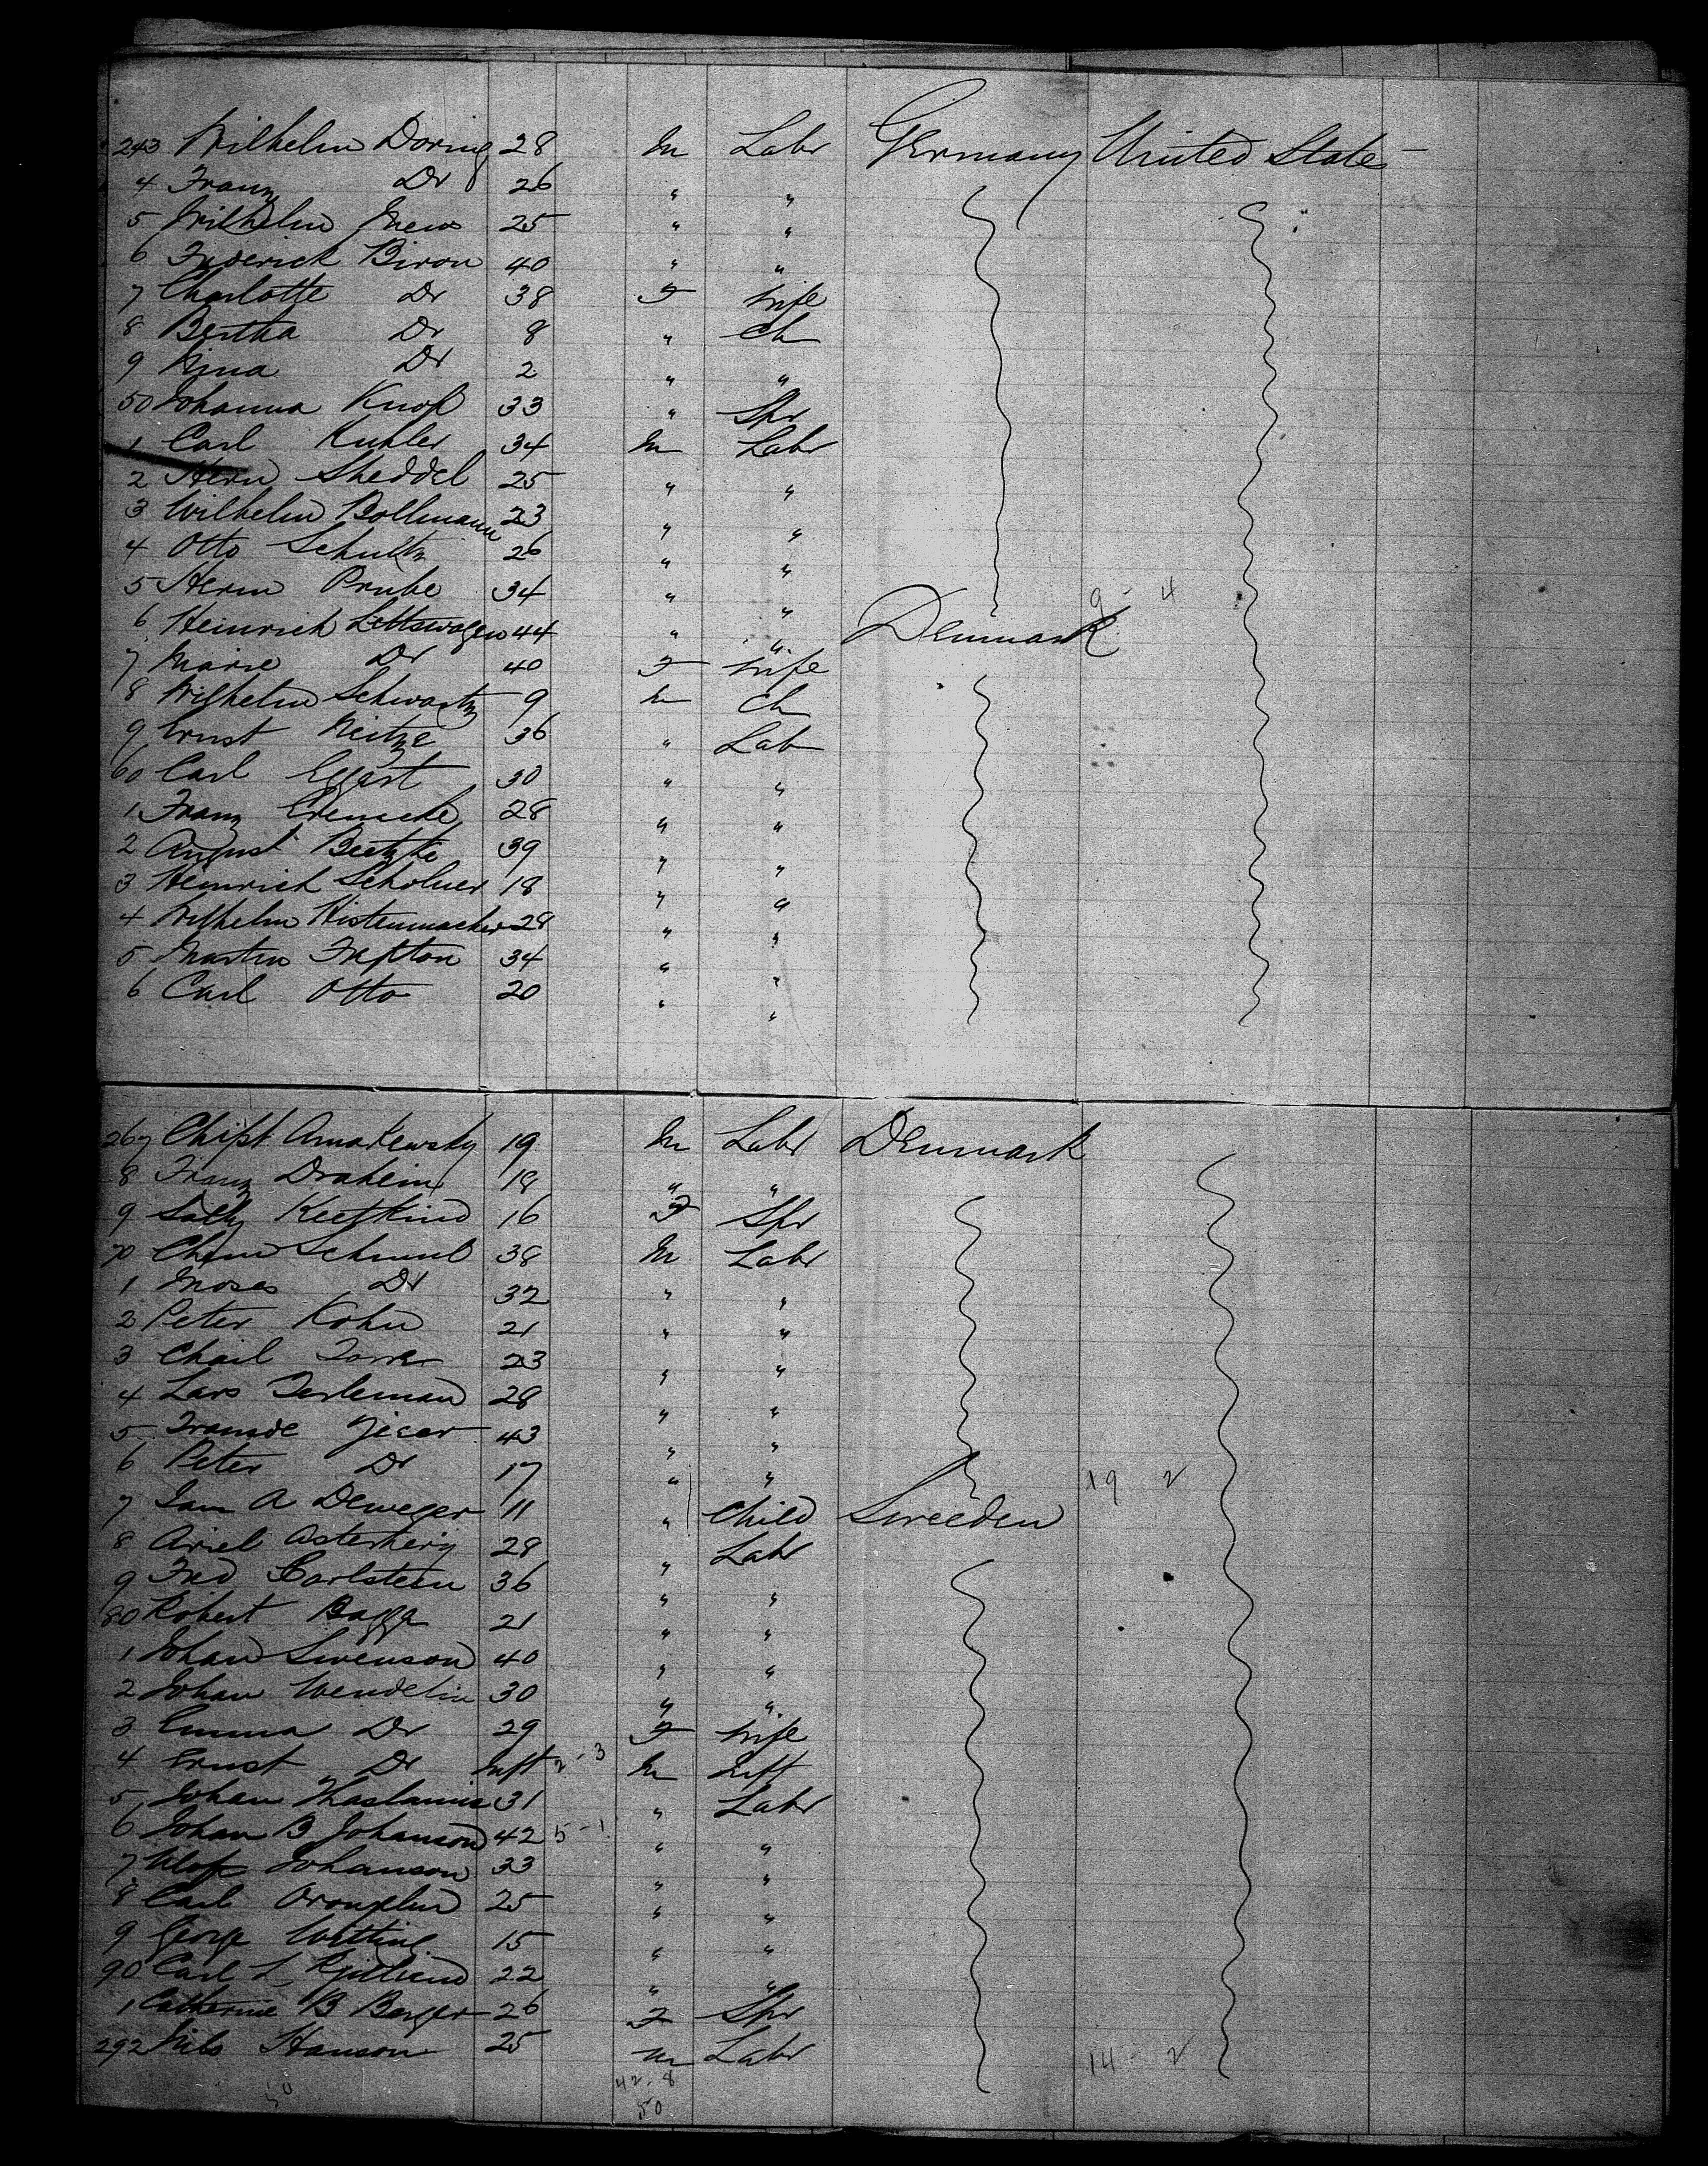 243 Wilhelm Doring 28 M Labr Germany United States
4 Franz Do 26 " "
5 Wilhelm 25 " "
6 Frederick Biron 40 " "
7 Charlotte Do 38 F Wife
8 Bertha Do 8 " Ch
9 Mina Do 2 " "
50 Johanna Knop 33 " Spr
1 Carl Kuhler 34 M Labr
2 Herm Sheddel 25 " "
3 Wilhelm Bollmann 23 " "
4 Otto Schultz 26 " "
5 Herm Prube 34 " " 9 - 4
6 Heinrich 44 " " Denmark
7 Marie Do 40 F Wife
8 Wilhelm Schwartz 9 M Ch
9 Ernst Neitze 36 " Lab
60 Carl Eggert 30 " "
1 Franz 28 " "
2 August Beetzke 39 " "
3 Heinrich Scholuer 18 " "
4 Wilhelm Histenmacher 28 " "
5 Martin 34 " "
6 Carl Otto 20 " "
267 19 M Labr Denmark
8 Franz Draheim 18 " "
9 Sally 16 F Spr
70 Schmul 38 M Labr
1 Moses Do 32 " "
2 Peter Kohn 21 " "
3 23 " "
4 Lars 28 " "
5 43 " "
6 Peter Do 17 " " 19 2
7 A 11 " Child Sweeden
8 28 " Labr
9 Fred Carlsteen 36 " "
80 Robert Bagge 21 " "
1 Johan Swenson 40 " "
2 Johan Wendelin 30 " "
3 Emma Do 29 F Wife
4 Ernst Do Inft 2-3 M Inft
5 Johan 31 " Labr
6 Johan B Johanson 42 5-1 " "
7 Johanson 33 " "
8 Carl 25 " "
9 George Witting 15 " "
90 Carl L 22 " "
1 Catherine B Berger 26 F Spr
292 Nils Hanson 25 M Labr 14 - 2
42-8
50 50